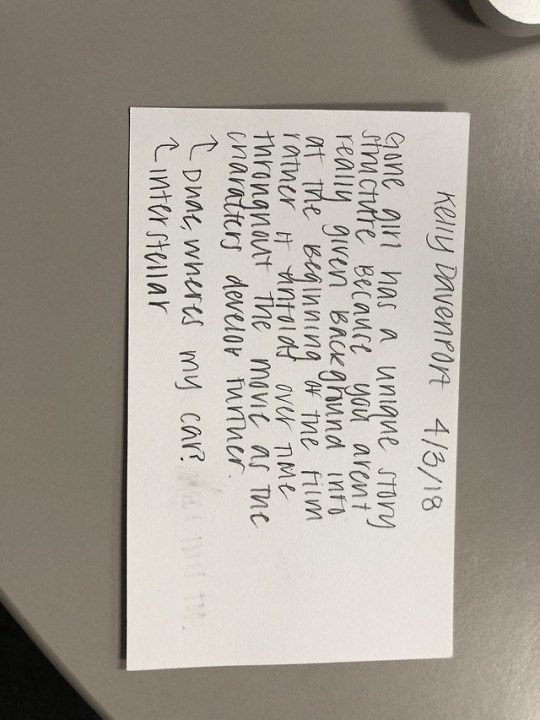 Kelly Davenport 4/3/18
Gone girl has a unique story
structure because you arent
really given background into
at the beginning of the film
rather it unfolds over time
throughout the movie as the
characters develop further.
↖ Dude, wheres my car?
↖ interstellar